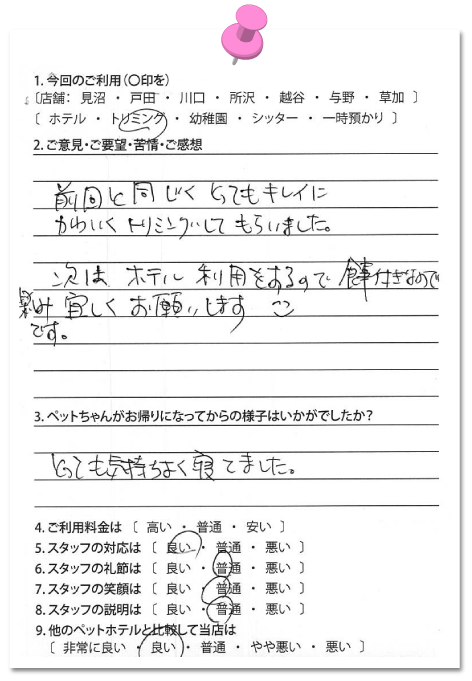 1. 今回のご利用(○印を)
〔店舗: 見沼 ・ 戸田 ・ 川口 ・ 所沢 ・ 越谷 ・ 与野 ・ 草加 〕
〔 ホテル ・ トリミング ・ 幼稚園 ・ シッター ・ 一時預かり 〕
2. ご意見・ご要望・苦情・ご感想
前回と同じくとってもキレイに
かわいくトリミングしてもらいました。
次は ホテル利用をするので 食事付きなので
宜しくお願いします
です。
3. ペットちゃんがお帰りになってからの様子はいかがでしたか?
とっても気持ちよく寝てました。
4. ご利用料金は 〔 高い ・ 普通 ・ 安い 〕
5. スタッフの対応は 〔 良い ・ 普通 ・ 悪い 〕
6. スタッフの礼節は 〔 良い ・ 普通 ・ 悪い 〕
7. スタッフの笑顔は 〔 良い ・ 普通 ・ 悪い 〕
8. スタッフの説明は 〔 良い ・ 普通 ・ 悪い 〕
9. 他のペットホテルと比較して当店は
〔 非常に良い ・ 良い ・ 普通 ・ やや悪い ・ 悪い 〕